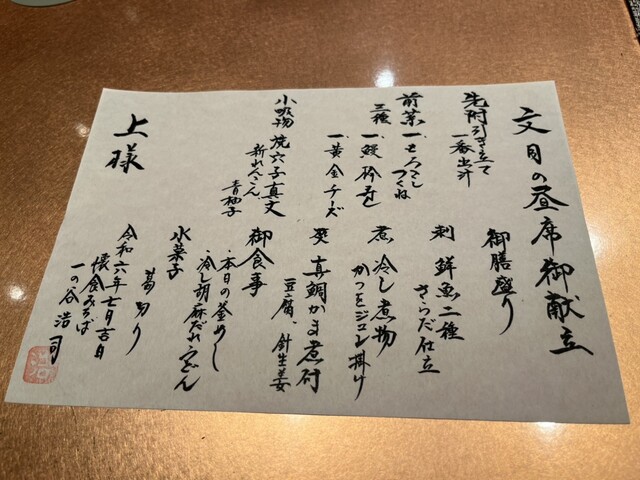 文月の昼席御献立
先附 引き立て
一番出汁
前菜 一、もろこし
つくね
三種 一、鰻砧巻
一、黄金チーズ
小吸物 焼穴子真丈
新れんこん
青柚子
御膳盛り
刺 鮮魚二種
さらだ仕立
煮 冷し煮物
かつをジュレ掛け
真鯛かま煮付
豆腐、針生姜
御食事
・本日の釜めし
・冷し胡麻だれうどん
水菓子
葛切り
令和六年七月吉日
懐食みちば
一の谷浩司
上様